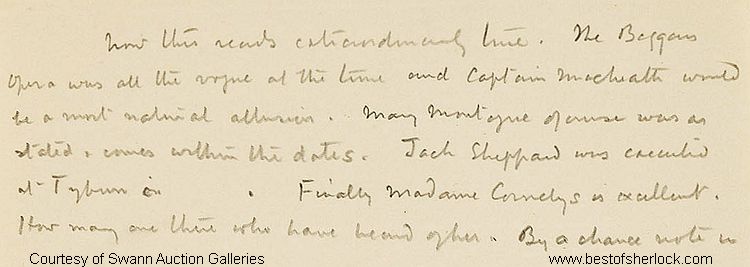 Now this reads extraordinarily true. The Beggars
Opera was all the vogue at the time and Captain Macheath would
be a most natural allusion. Mary Montague of course was as
stated & comes within the dates. Jack Sheppard was executed
at Tyburn in . Finally Madame Cornelys is excellent.
How many are there who have heard of her. By a chance note in
Courtesy of Swann Auction Galleries www.bestofsherlock.com